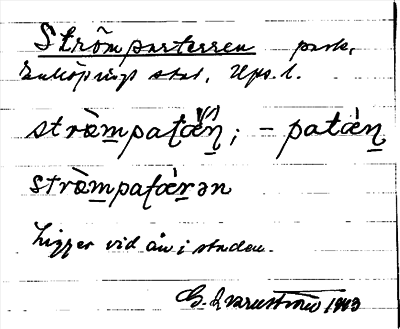 Strömparterren park,
Enköpings stad, Ups. l.
strœ̀m̲pata͡én̲; - patœ́n̲
strœ̀m̲patœ́r̲ən
Ligger vid ån i staden.
1943